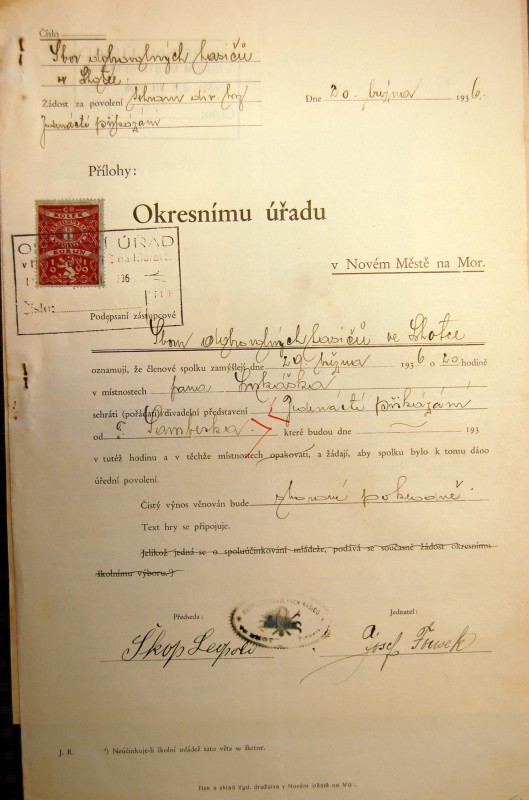 Číslo
Sbor dobrovolných hasičů
ve Lhotce
Žádost za povolení sehrání div. hry
Jedenácté přikázání
Dne 20. března 1936.
Přílohy:
Okresnímu úřadu
v Novém Městě na Mor.
KOLEK
KORUN
ÚŘAD
Číslo:
Podepsaní zástupcové
Sboru dobrovolných hasičů ve Lhotce
oznamují, že členové spolku zamýšlejí dne 29 března 1936 o 20 hodině
v místnostech pana Lukáška
sehráti (pořádati) divadelní představení „Jedenácté přikázání
od F. Šamberka. které budou dne 193
v tutéž hodinu a v těchže místnostech opakovati, a žádají, aby spolku bylo k tomu dáno
úřední povolení.
Čistý výnos věnován bude sborové pokladně.
Text hry se připojuje.
Jelikož jedná se o spoluúčinkování mládeže, podává se současně žádost okresnímu
školnímu výboru.¹)
Předseda:
Jednatel:
Škop Leopold
Josef
J. R. ¹) Neúčinkuje-li školní mládež tato věta se škrtne.
Tisk a sklad Vyd. družstva v Novém městě na Mor.